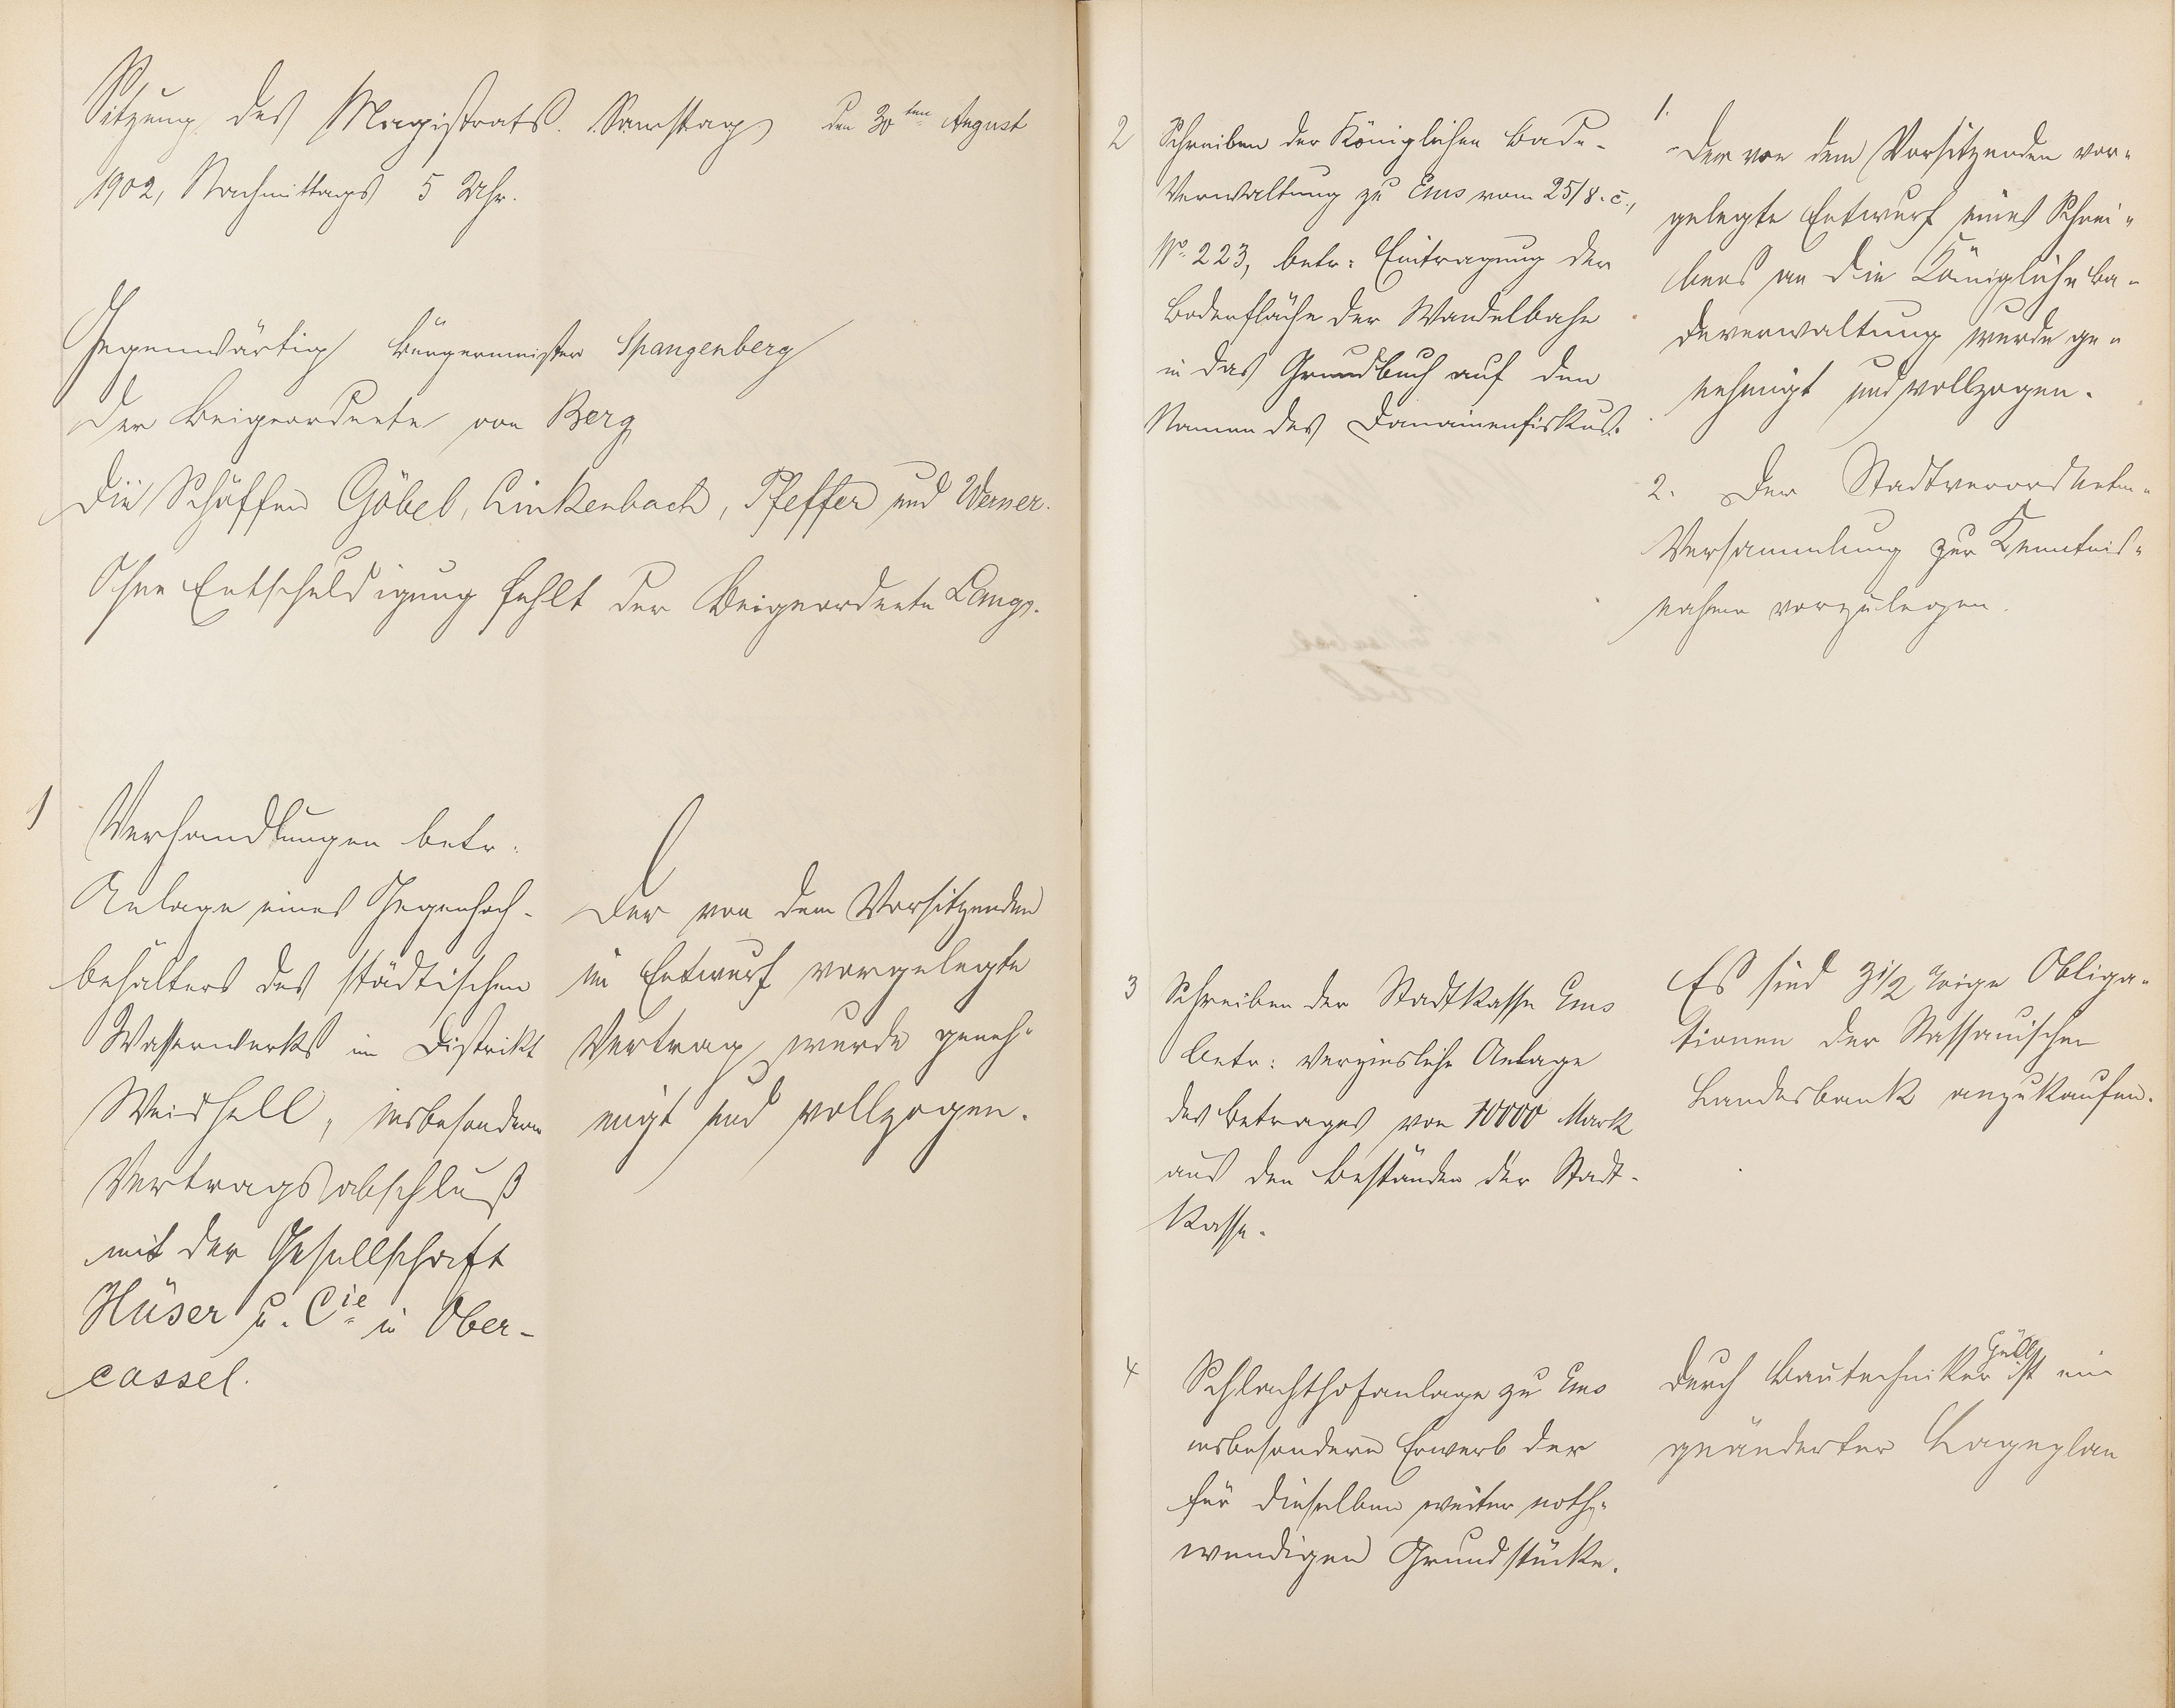 Sitzung des Magistrats. Samstag, den 30ten August
1902, Nachmittags 5 Uhr.
Gegenwärtig Bürgermeister Spangenberg
der Beigeordnete von Berg
die Schöffen Göbel, Linkenbach, Pfeffer und Werner.
Ohne Entschuldigung fehlt der Beigeordnete Lange.
1
Verhandlungen betr.
Anlage eines Gegenhoch-
behälters des städtischen
Wasserwerks im Distrikt
Weishell, insbesondere
Vertragsabschluß
mit der Gesellschaft
Hüser u. Cie in Ober-
cassel.
Der von dem Vorsitzenden
im Entwurf vorgelegte
Vertrag wurde geneh-
migt und vollzogen.
2 Schreiben der Königlichen Bade-
Verwaltung zu Ems vom 25/8. c.,
No. 223, betr: Eintragung der
Bodenfläche der Wandelbahn
in das Grundbuch auf den
Namen des Domainenfiskus.
1.
Der von dem Vorsitzenden vor-
gelegte Entwurf eines Schrei-
bens an die Königliche Ba-
deverwaltung wurde ge-
nehmigt und vollzogen.
2. Der Stadtverordneten-
Versammlung zur Kenntnis-
nahme vorzulegen.
3 Schreiben der Stadtkasse Ems
betr: verzinsliche Anlage
des Betrages von 10000 Mark
aus den Beständen der Stadt-
kasse.
Es sind 3 1/2 %ige Obliga-
tionen der Nassauischen
Landesbank anzukaufen.
4 Schlachthofanlage zu Ems
insbesondere Erwerb der
für dieselben weiter noth-
wendigen Grundstücke.
Durch Bautechniker ist ein
geänderter Lageplan